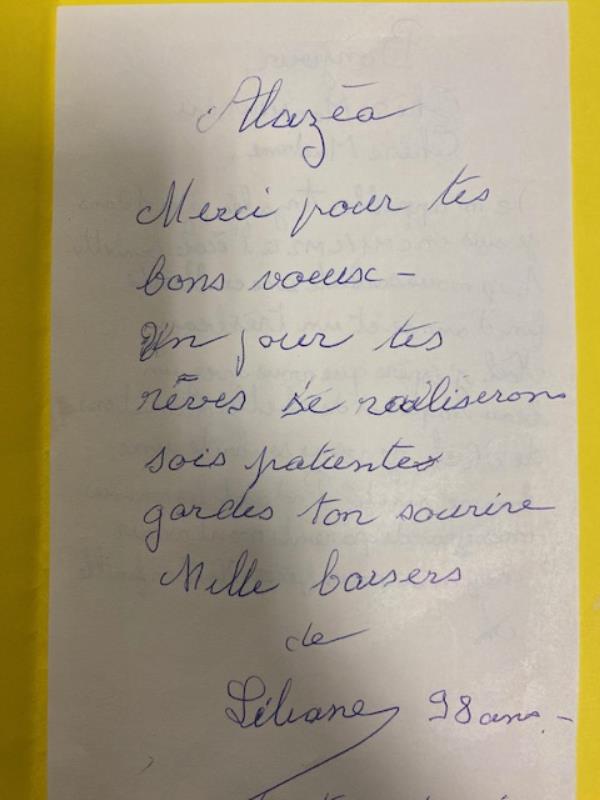 Alazéa
Merci pour tes
bons voeux -
Un jour tes
rêves se realiserons
sois patiente
gardes ton sourire
Mille baisers
de
Liliane 98 ans -